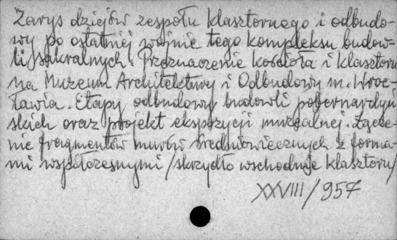 Zarys dziejów zespołu klasztornego i odbudo-
wy po ostatniej wojnie tego kompleksu budow-
li sakralnych. Przeznaczenie kościoła i klasztoru
na Muzeum Architektury i Odbudowy m. Wroc-
ławia. Etapy odbudowy budowli pobernardyń-
skich oraz projekt ekspozycji muzealnej. Łącze-
nie fragmentów murów średniowiecznych z forma-
mi współczesnymi /skrzydło wschodnie klasztoru/
XXVIII/957